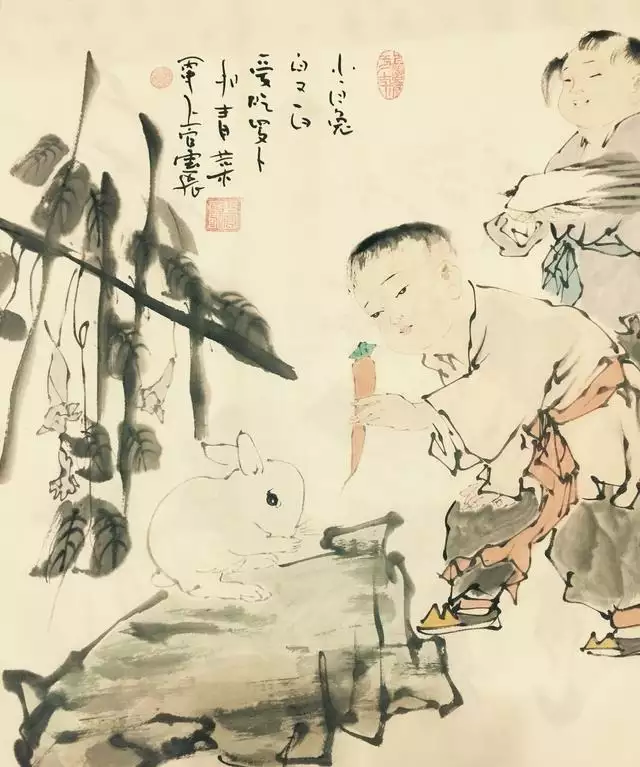 小白兔
白又白
爱吃罗卜
和青菜
上官雲